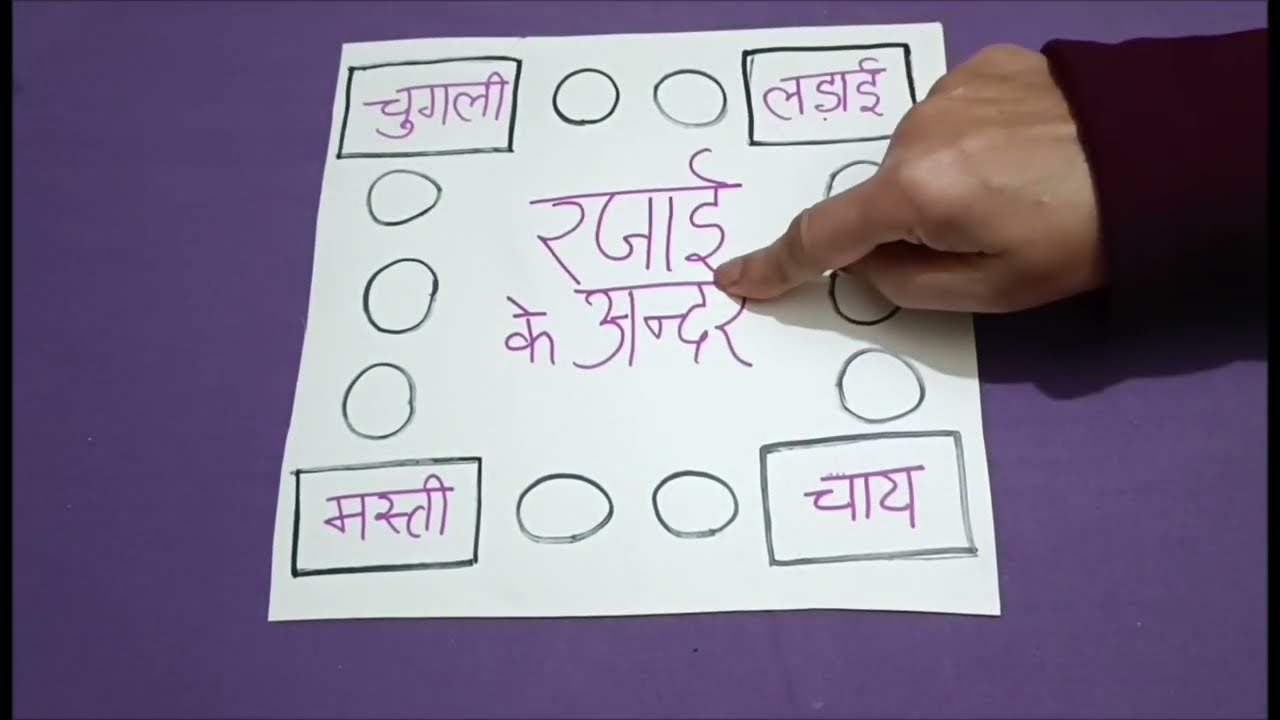 चुगली
लड़ाई
रजाई
के अन्दर
मस्ती
चाय